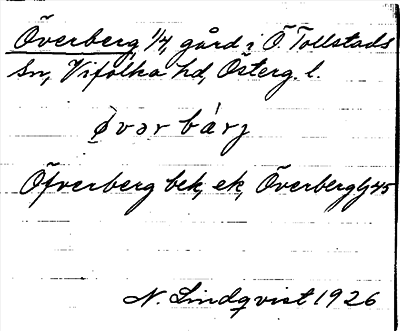 Överberg, 1/4, gård i Ö. Tollstads
Sn, Vifolka hd, Österg. l.
ø̨vər bár̨j
Öfverberg bek, ek, Överberg GJ 45
N. Lindqvist 1926